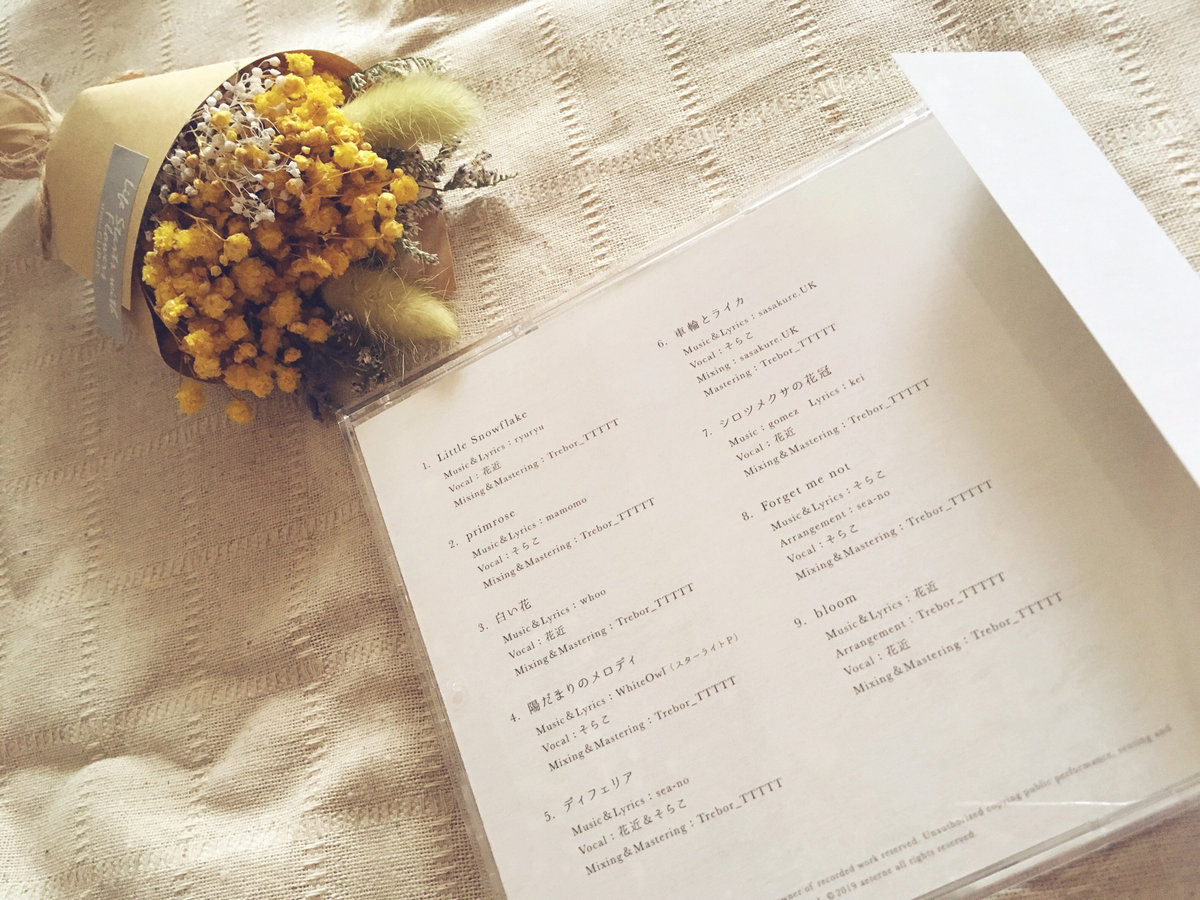 1. Little Snowflake
Music&Lyrics：ryuryu
Vocal：花近
Mixing&Mastering：Trebor_TTTTT
2. primrose
Music&Lyrics：mamomo
Vocal：そらこ
Mixing&Mastering：Trebor_TTTTT
3. 白い花
Music&Lyrics：whoo
Vocal：花近
Mixing&Mastering：Trebor_TTTTT
4. 陽だまりのメロディ
Music&Lyrics：WhiteOwl（スターライトP）
Vocal：そらこ
Mixing&Mastering：Trebor_TTTTT
5. ディフェリア
Music&Lyrics：sea-no
Vocal：花近&そらこ
Mixing&Mastering：Trebor_TTTTT
6. 車輪とライカ
Music&Lyrics：sasakure.UK
Vocal：そらこ
Mixing：sasakure.UK
Mastering：Trebor_TTTTT
7. シロツメクサの花冠
Music：gomez Lyrics：kei
Vocal：花近
Mixing&Mastering：Trebor_TTTTT
8. Forget me not
Music&Lyrics：そらこ
Arrangement：sea-no
Vocal：そらこ
Mixing&Mastering：Trebor_TTTTT
9. bloom
Music&Lyrics：花近
Arrangement：Trebor_TTTTT
Vocal：花近
Mixing&Mastering：Trebor_TTTTT
owner of recorded work reserved. Unauthorized copying public performance, renting and
©2019 aeterne all rights reserved.